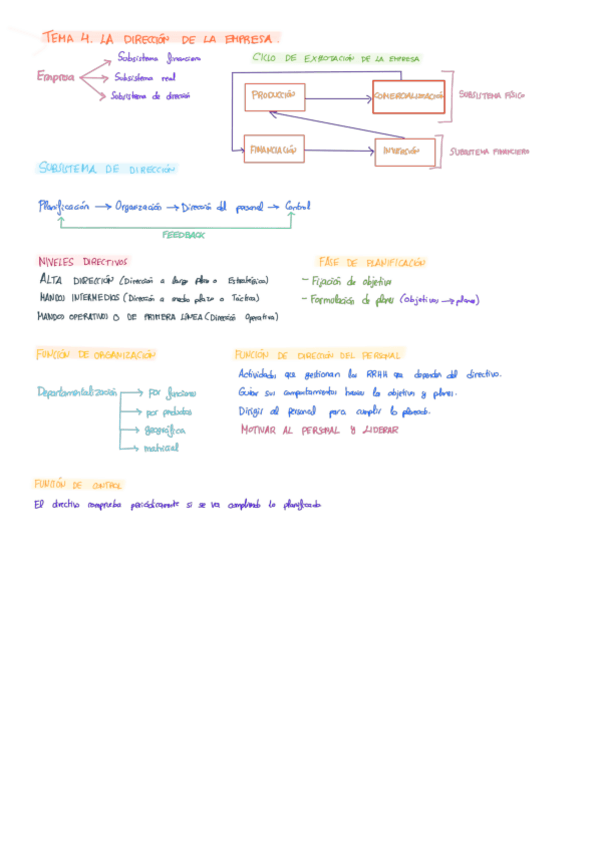 TEMA 4. LA DIRECCIÓN DE LA EMPRESA.
Empresa
Subsistema financiero
Subsistema real
Subsistema de dirección
CICLO DE EXPLOTACIÓN DE LA EMPRESA
PRODUCCIÓN
COMERCIALIZACIÓN
SUBSISTEMA FÍSICO
FINANCIACIÓN
INVERSIÓN
SUBSISTEMA FINANCIERO
SUBSISTEMA DE DIRECCIÓN
Planificación → Organización → Dirección del personal → Control
FEEDBACK
NIVELES DIRECTIVOS
ALTA DIRECCIÓN (Dirección a largo plazo o Estratégica)
MANDOS INTERMEDIOS (Dirección a medio plazo o Táctica)
MANDOS OPERATIVOS O DE PRIMERA LÍNEA (Dirección Operativa)
FASE DE PLANIFICACIÓN
- Fijación de objetivos
- Formulación de planes (Objetivos → planes)
FUNCIÓN DE ORGANIZACIÓN
Departamentalización
por funciones
por productos
geográfica
matricial
FUNCIÓN DE DIRECCIÓN DEL PERSONAL
Actividades que gestionan los RRHH que dependen del directivo.
Guiar sus comportamientos hacia los objetivos y planes.
Dirigir al Personal para cumplir lo planeado.
MOTIVAR AL PERSONAL Y LIDERAR
FUNCIÓN DE CONTROL
El directivo comprueba periódicamente si se va cumpliendo lo planificado